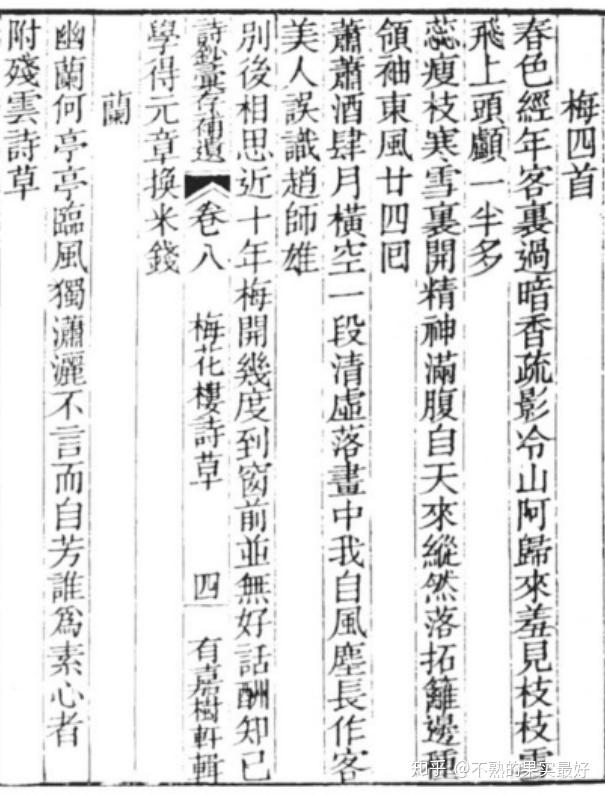 梅四首
春色經年客裏過暗香疏影冷山阿歸來羞見枝枝雪
飛上頭顱一半多
蕊瘦枝寒雪裏開精神滿腹自天來縱然落拓籬邊種
領袖東風廿四囘
蕭蕭酒肆月橫空一段清虛落畫中我自風塵長作客
美人誤識趙師雄
別後相思近十年梅開幾度到窗前並無好話酬知己
詩鈔彙存補遺 卷八 梅花樓詩草 四 有嘉樹軒輯
學得元章換米錢
蘭
幽蘭何亭亭臨風獨瀟灑不言而自芳誰爲素心者
附殘雲詩草
知乎 @不熟的果实最好